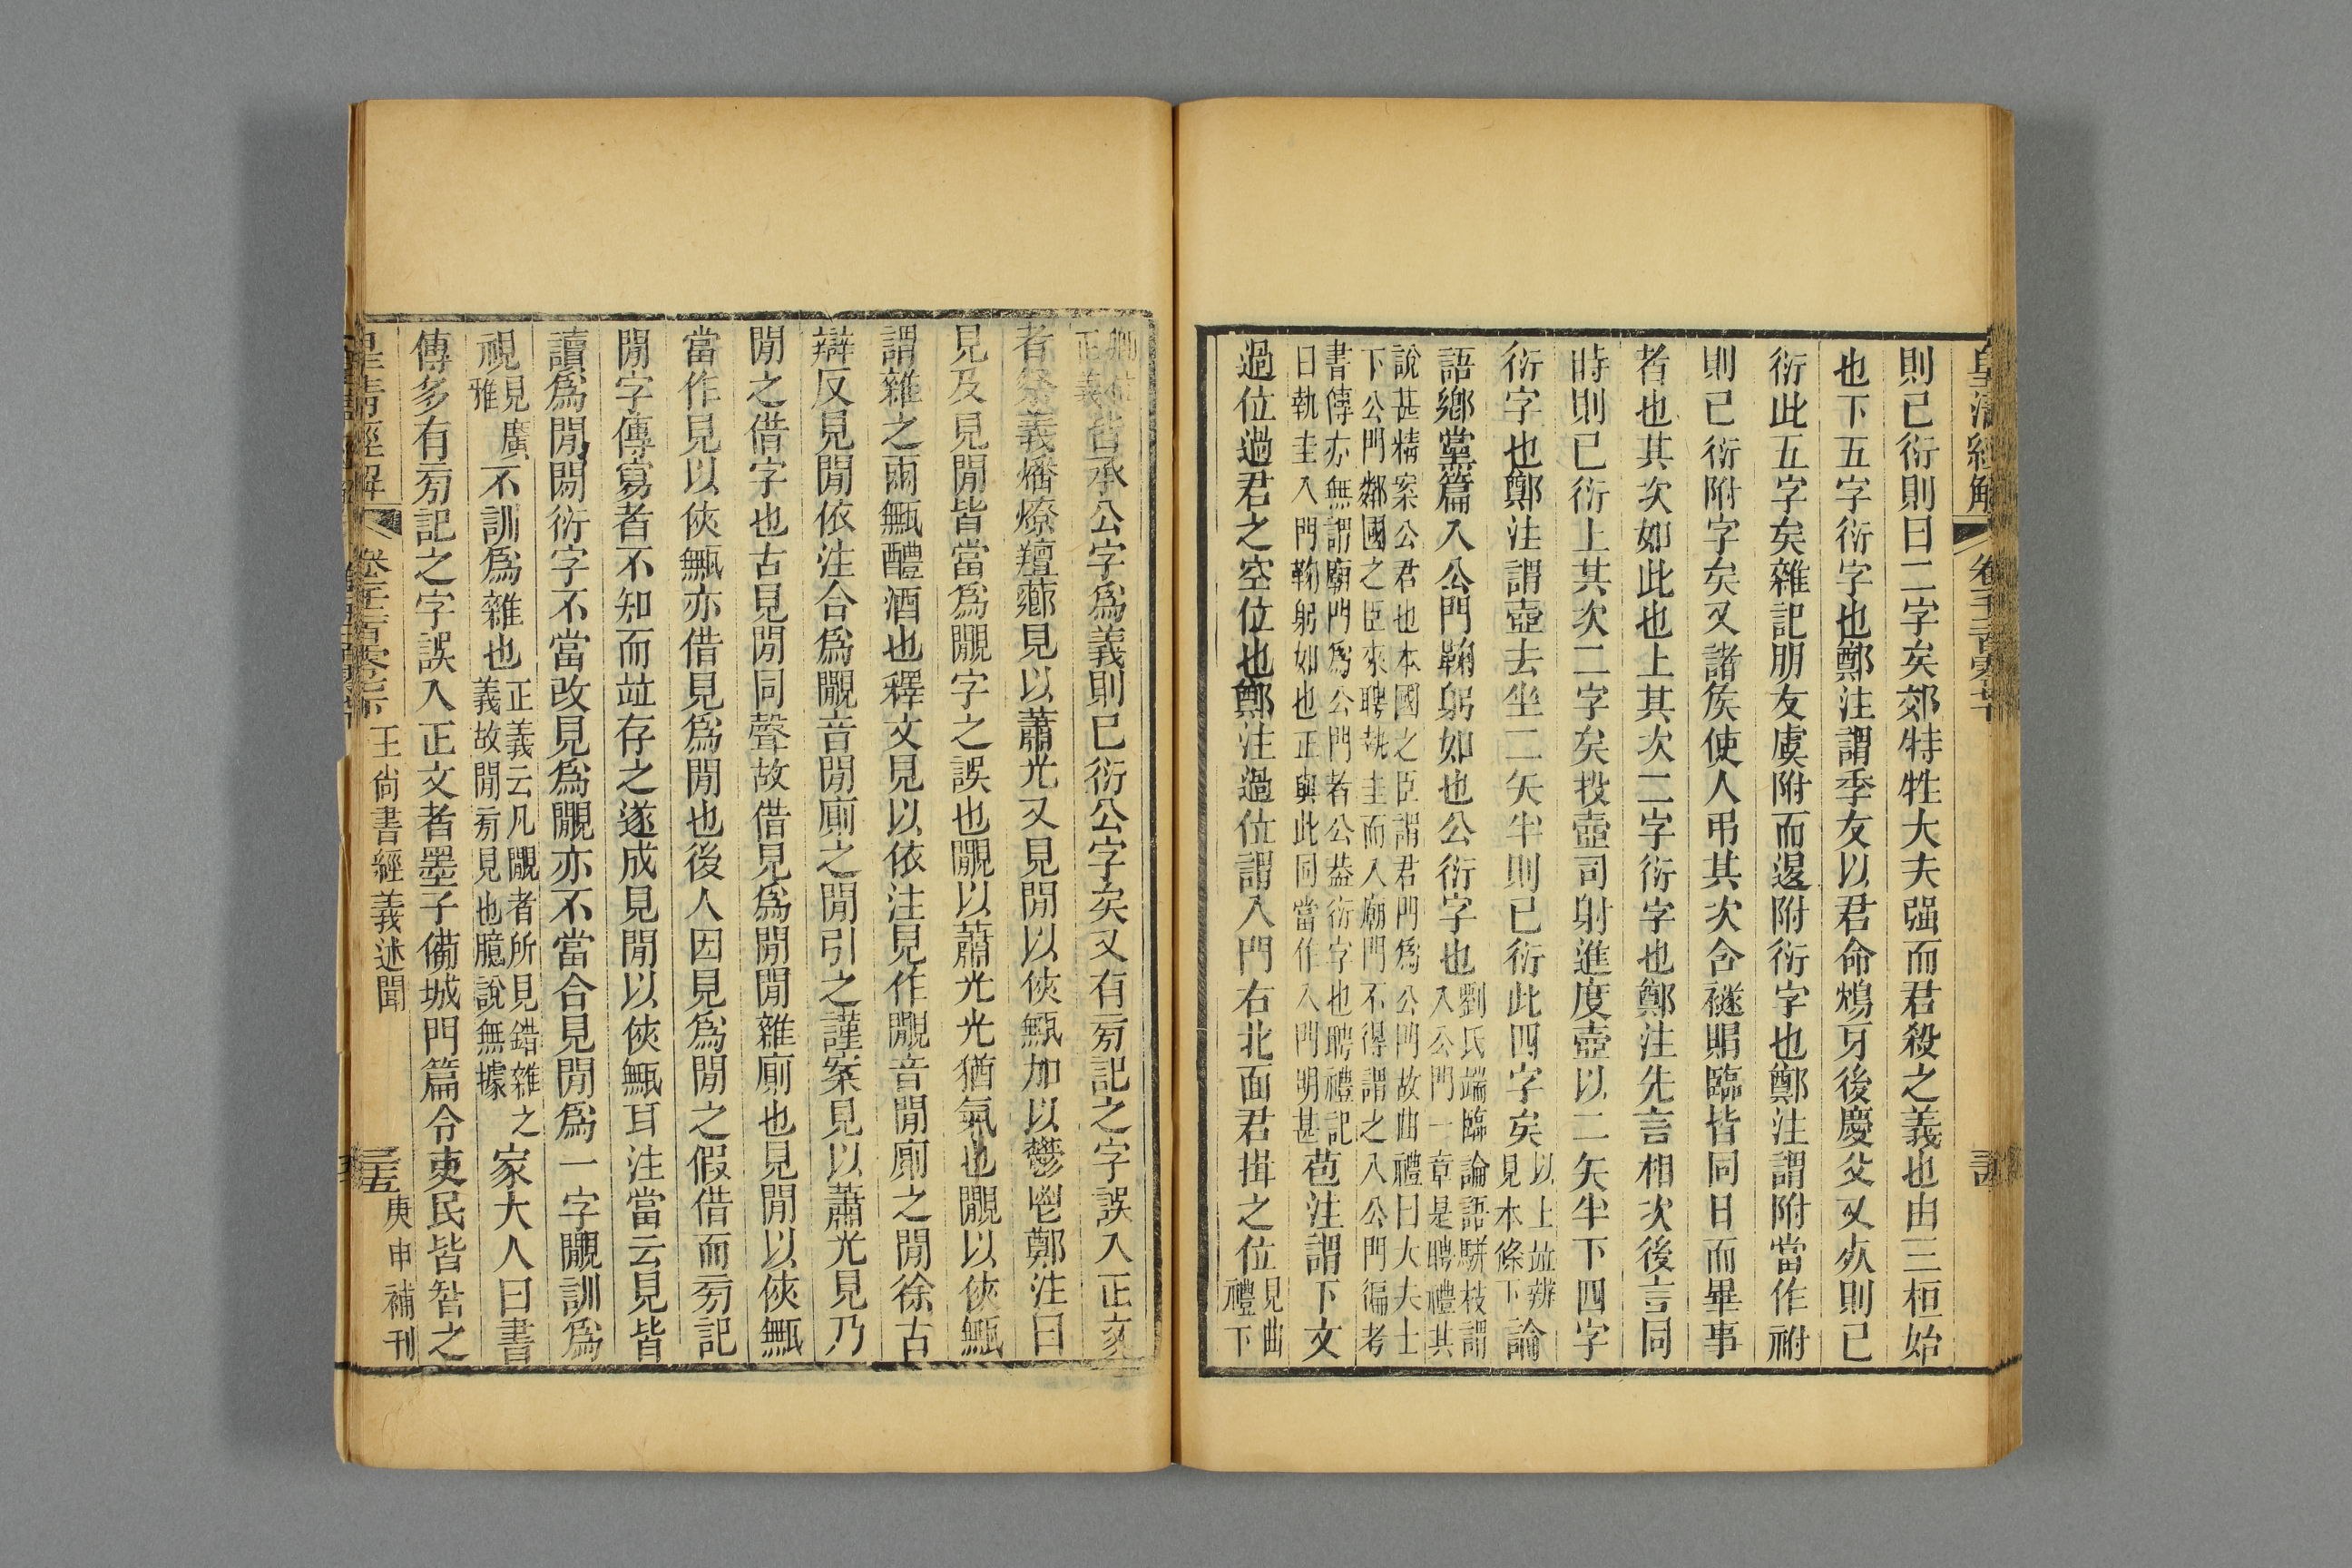 皇清經解 卷
則已衍則曰二字矣郊特牲大夫强而君殺之義也由三桓始
也下五字衍字也鄭注謂季友以君命鴆牙後慶父又死則已
衍此五字矣雜記朋友虞附而退附衍字也鄭注謂附當作祔
則已衍附字矣又諸矦使人弔其次含襚賵臨皆同日而畢事
者也其次如此也上其次二字衍字也鄭注先言相次後言同
時則已衍上其次二字矣投壺司射進度壺以二矢半下四字
衍字也鄭注謂壺去坐二矢半則已衍此四字矣以上竝辨見本條下論
語鄉黨篇入公門鞠躬如也公衍字也劉氏端臨論語駢枝謂入公門一章是聘禮其
說甚精案公君也本國之臣謂君門爲公門故曲禮曰大夫士下公門鄰國之臣來聘執圭而入廟門不得謂之入公門徧考
書傳亦無謂廟門爲公門者公葢衍字也聘禮記曰執圭入門鞠躬如也正與此同當作入門明甚苞注謂下文
過位過君之空位也鄭注過位謂入門右北面君揖之位見曲禮下
正義皆承公字爲義則已衍公字矣又有旁記之字誤入正文
者祭義燔燎羶薌見以蕭光又見閒以俠甒加以鬱鬯鄭注曰
見及見閒皆當爲覸字之誤也覸以蕭光光猶氣也覸以俠甒
謂雜之兩甒醴酒也釋文見以依注見作覸音閒廁之閒徐古
辯反見閒依注合爲覸音閒廁之閒引之謹案見以蕭光見乃
閒之借字也古見閒同聲故借見爲閒閒雜廁也見閒以俠甒
當作見以俠甒亦借見爲閒也後人因見爲閒之假借而旁記
閒字傳寫者不知而竝存之遂成見閒以俠甒耳注當云見皆
讀爲閒閒衍字不當改見爲覸亦不當合見閒爲一字覸訓爲
視見廣雅不訓爲雜也正義云凡覸者所見錯雜之義故閒旁見也臆說無據家大人曰書
傳多有旁記之字誤入正文者墨子備城門篇令吏民皆智之
皇清經解 王尙書經義述聞 庚申補刊